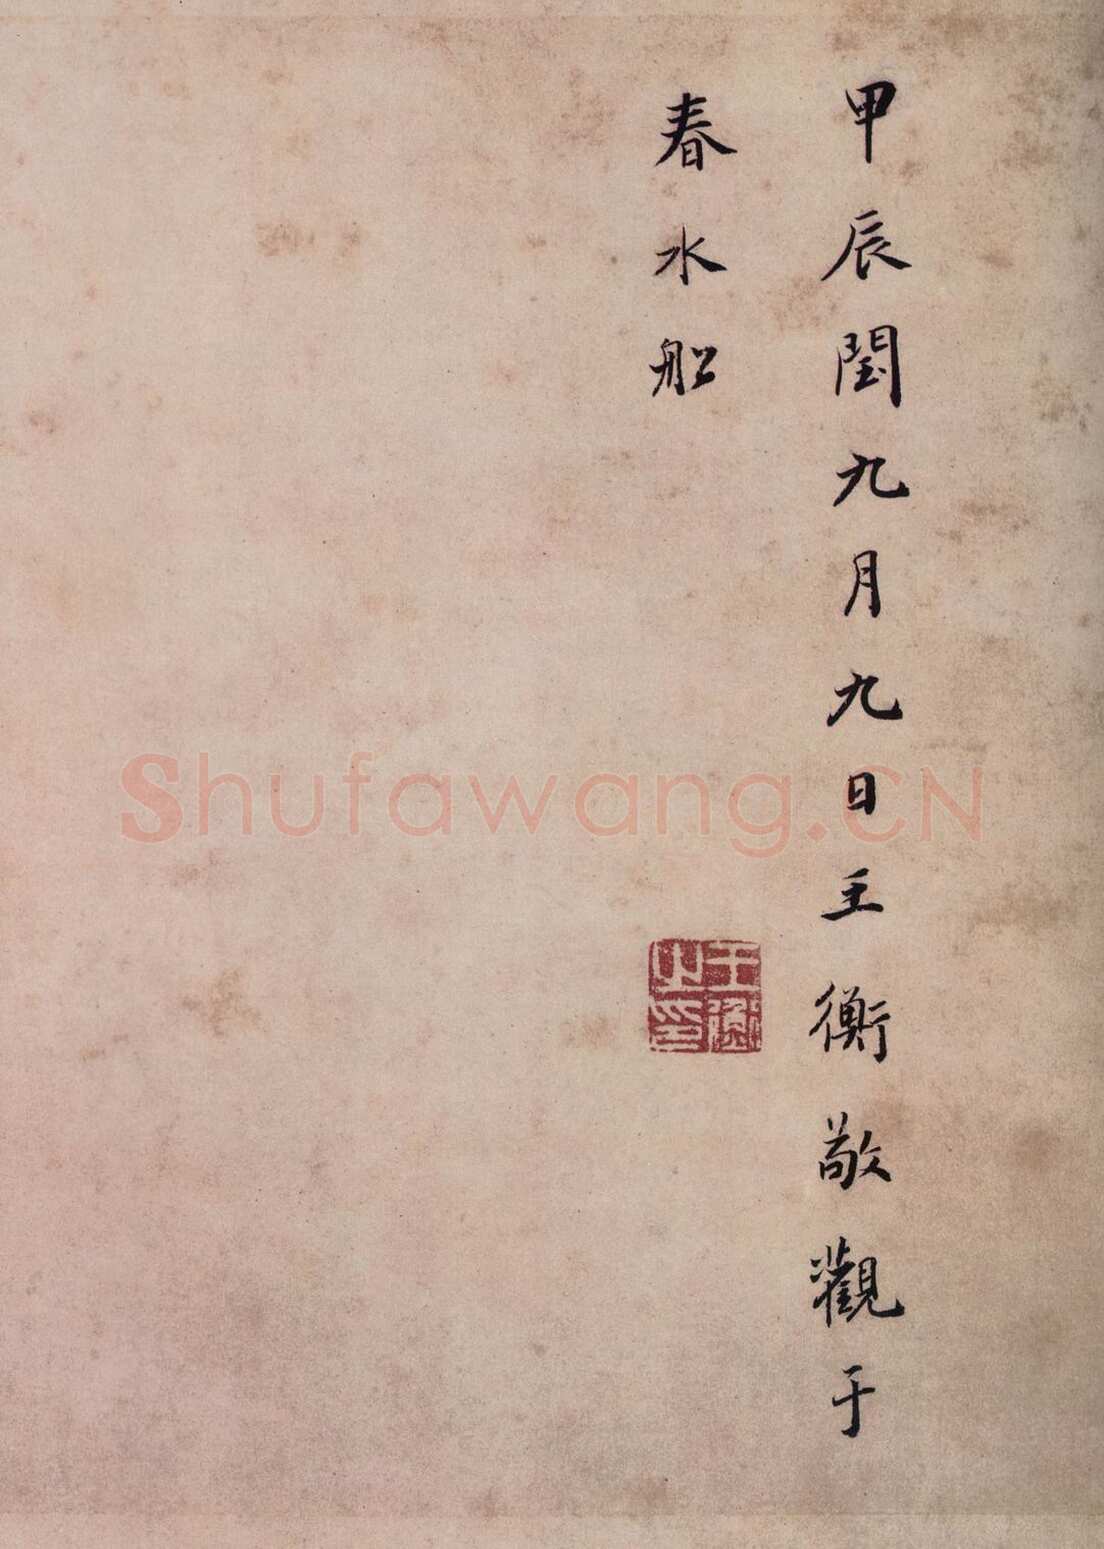 甲辰閏九月九日王衡敬觀于
春水船
王衡之印
Shufawang.CN